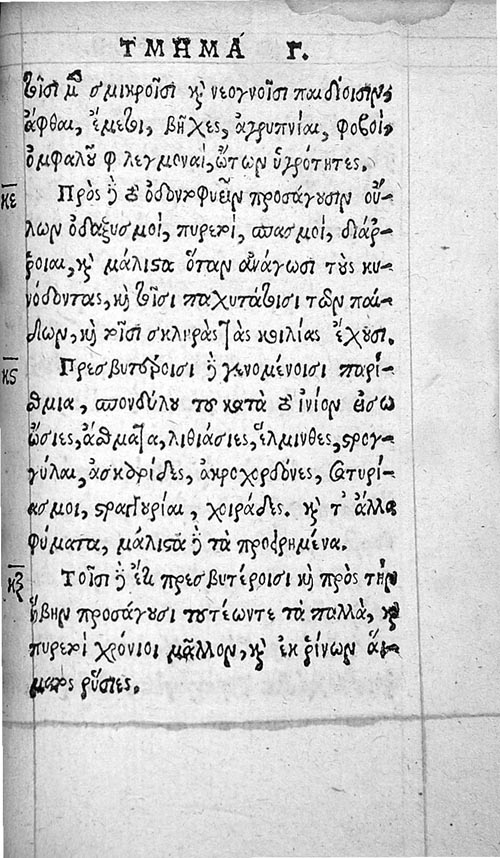 ΤΜΗΜΑ Γ.
τοῖσι μὲν σμικροῖσι καὶ νεογνοῖσι παιδίοισιν,
ἄφθαι, ἔμετοι, βῆχες, ἀγρυπνίαι, φόβοι,
ὀμφαλοῦ φλεγμοναὶ, ὤτων ὑγρότητες.
κε Πρὸς δὲ τὸ ὀδοντοφυεῖν προσάγουσιν οὔ-
λων ὀδαξυσμοὶ, πυρετοὶ, σπασμοὶ, διάρ-
ροιαι, καὶ μάλιστα ὅταν ἀνάγωσι τοὺς κυ-
νόδοντας, καὶ τοῖσι παχυτάτοισι τῶν παι-
δίων, καὶ τοῖσι σκληρὰς τὰς κοιλίας ἔχουσι.
κϛ Πρεσβυτέροισι δὲ γενομένοισι παρί-
σθμια, σπονδύλου τοῦ κατὰ τὸ ἰνίον εἴσω
ὤσιες, ἄσθματα, λιθιάσιες, ἕλμινθες, στρογ-
γύλαι, ἀσκαρίδες, ἀκροχορδόνες, σατυρι-
ασμοι, στραγγουρίαι, χοιράδες. καὶ τ' ἄλλα
φύματα, μάλιστα δὲ τὰ προειρημένα.
κζ Τοῖσι δὲ ἔτι πρεσβυτέροισι καὶ πρὸς τὴν
ἥβην προσάγουσι τουτέωντε τὰ πολλὰ, καὶ
πυρετοὶ χρόνιοι μᾶλλον, καὶ ἐκ ῥίνων αἵ-
ματος ῥύσιες.